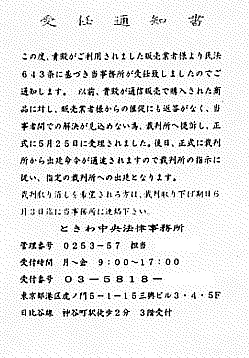 受任通知書
この度、貴殿がご利用されました販売業者様より民法
643条に基づき当事務所が受任致しましたのでご
通知します。 以前、貴殿が通信販売で購入された商
品に対し、販売業者様からの催促にも返答がなく、当
事者間での解決が見込めない為、裁判所へ提訴し、正
式に5月25日に受理されました。後日、正式に裁判
所から出廷命令が通達されますので裁判所の指示に
従い、指定の裁判所への出廷となります。
裁判取り消しを希望される方は、裁判取り下げ期日6
月3日迄に当事務所に連絡下さい。
ときわ中央法律事務所
管理番号 0253-57 担当
受付時間 月~金 9:00~17:00
受付番号 03-5818-
東京都港区虎ノ門5-1-15三興ビル3・4・5F
日比谷線 神谷町駅徒歩2分 3階受付